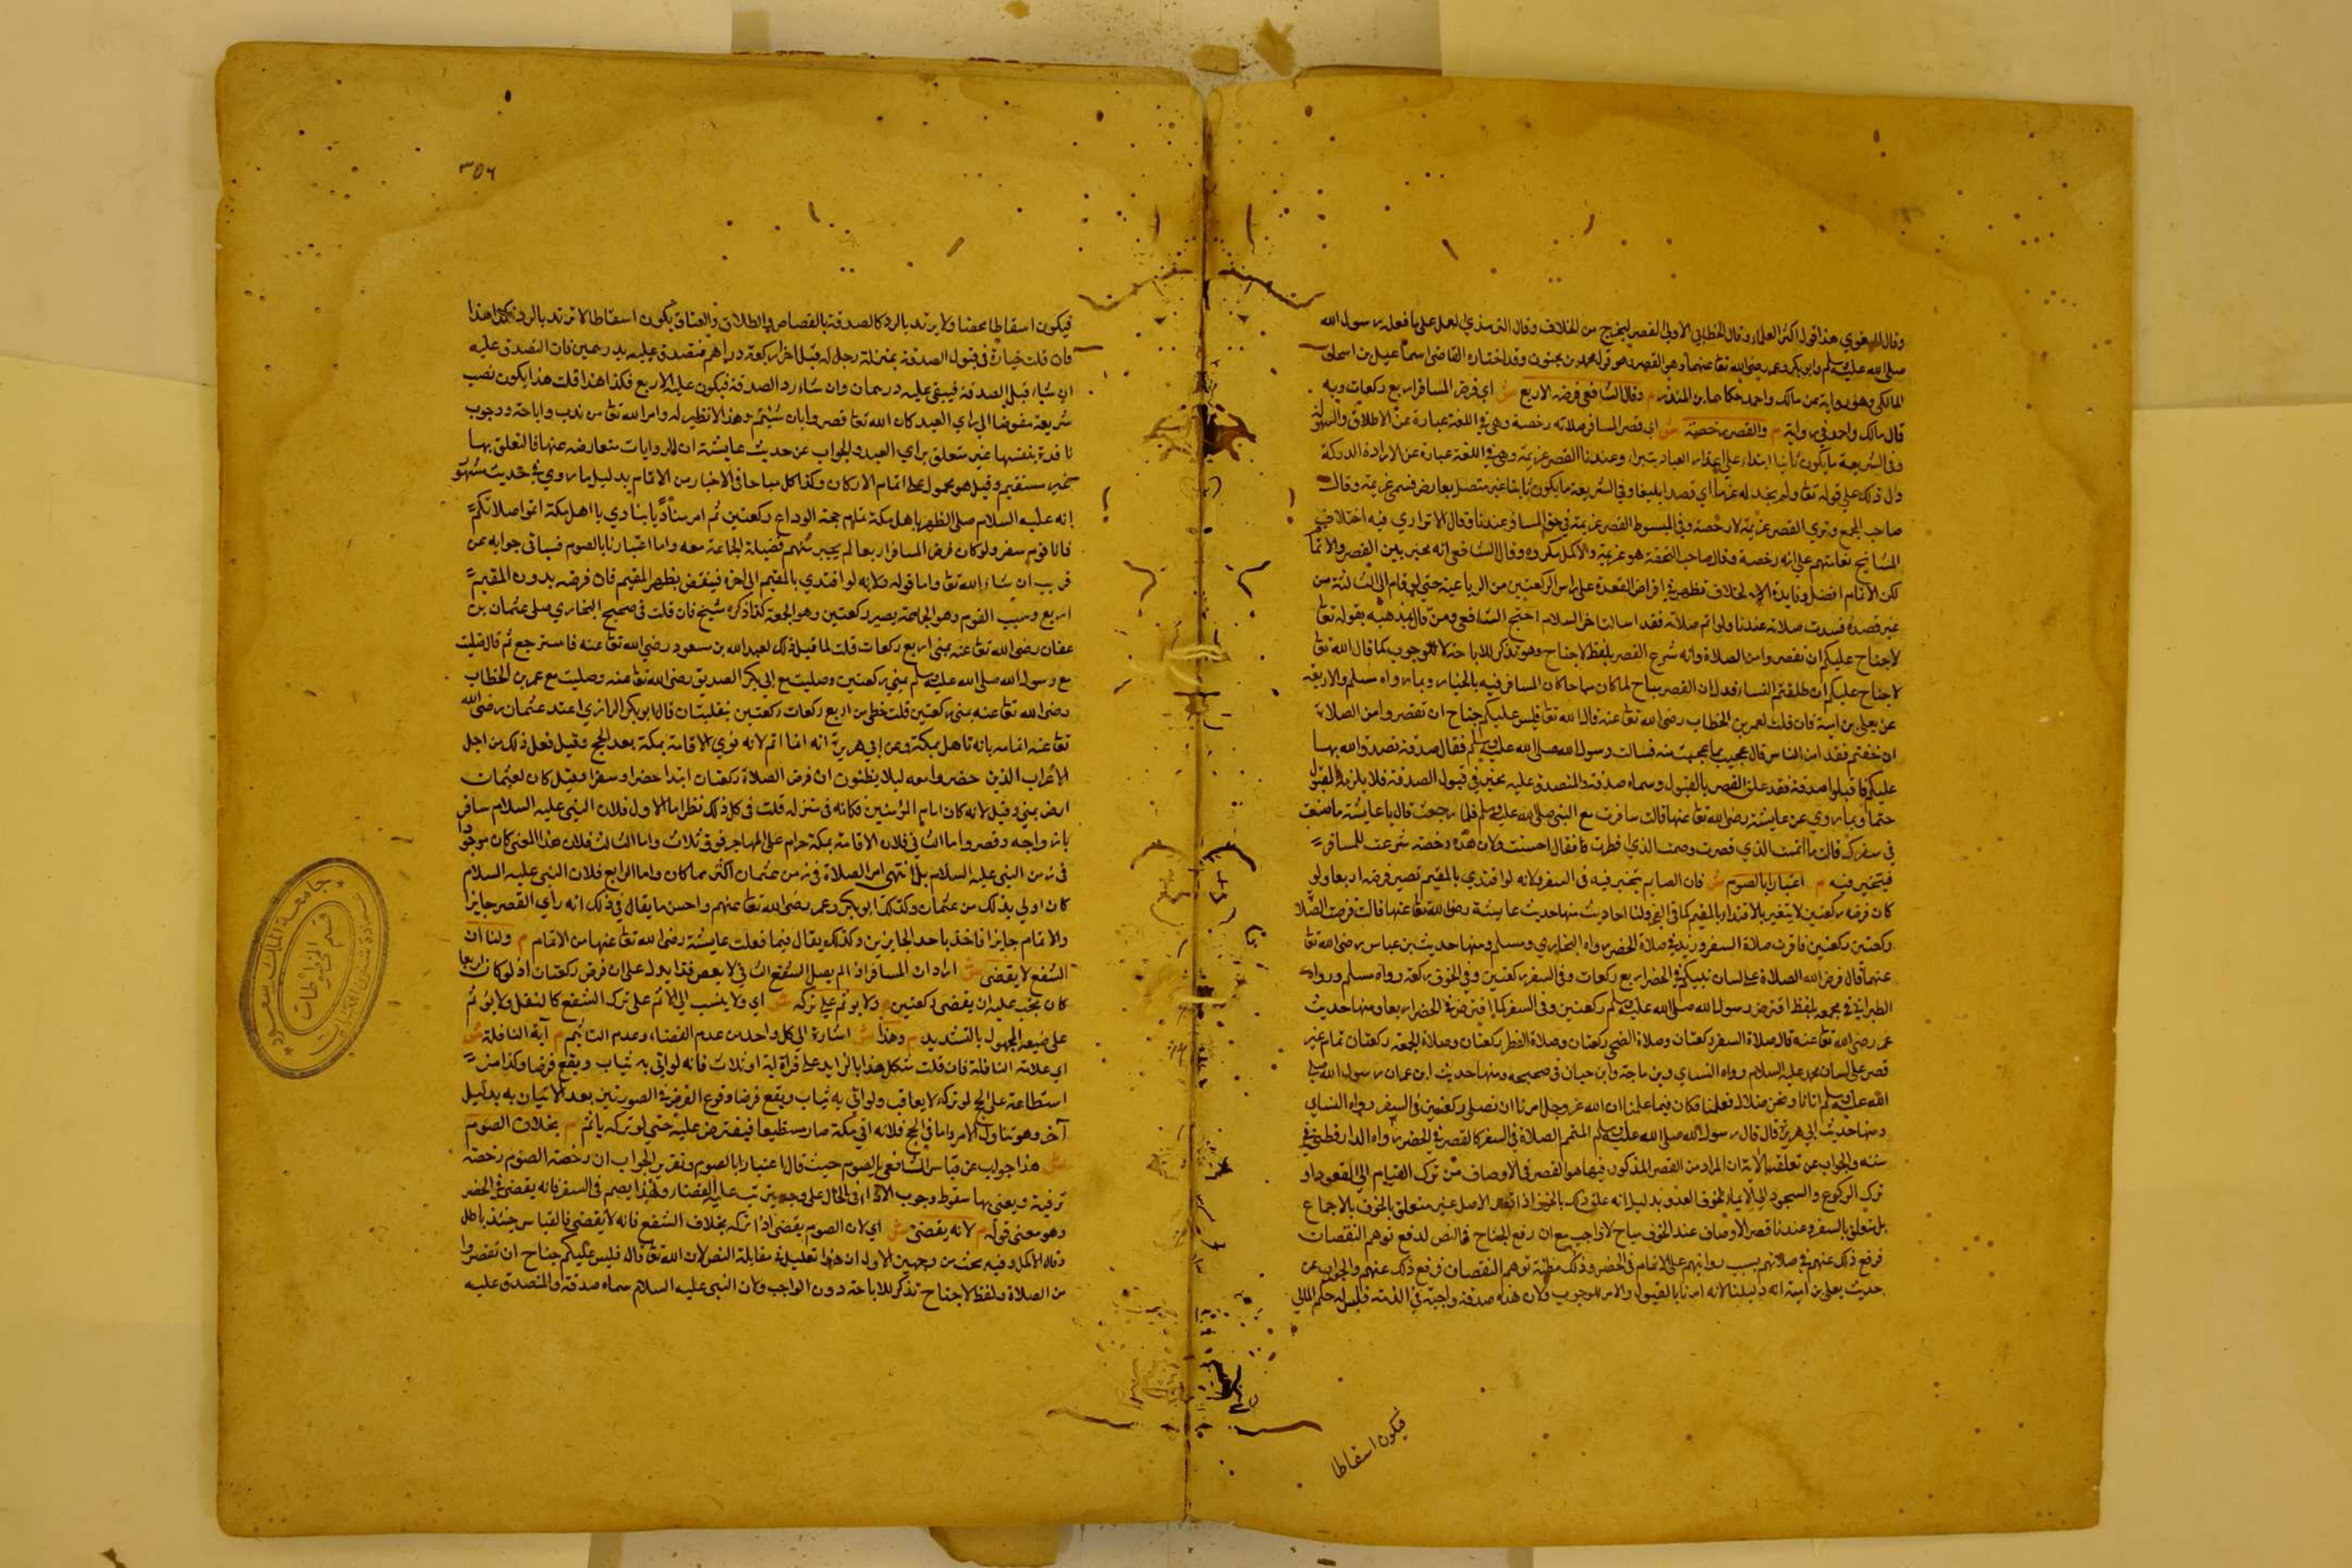 وقال البغوي هذا قول اكثر العلماء وقال الخطابي الاولى القصر ليخرج من الخلاف وقال الترمذي العمل على ما فعله رسول الله
صلى الله عليه وسلم وابو بكر وعمر رضي الله تعا عنهما وهو القصر وهو قول محمد بن سحنون وقد اختاره القاضي اسماعيل بن اسحاق
المالكي وهو رواية عن مالك واحمد حكاها ابن المنذر م وقال الشافعي فرضه الاربع ش اي فرض المسافر اربع ركعات وبه
قال مالك واحمد في رواية م والقصر رخصة ش اي قصر المسافر صلاته رخصة وهي في اللغة عبارة عن الاطلاق والسهولة
وفي الشريعة ما يكون ثابتا ابتداء على اعذار العباد تيسرا وعندنا القصر عزيمة وهي في اللغة عبارة عن الارادة المؤكدة
دل ذلك على قوله تعا ولم نجد له عزما اي قصدا بليغا وفي الشريعة ما يكون ثابتا غير متصل بعارض فسمي عزيمة وقال
صاحب المجمع ونوي القصر عزيمة لا رخصة وفي المبسوط القصر عزيمة في حق المسافر عندنا وقال الاتراري فيه اختلاف
المشايخ فعامتهم على انه رخصة وقال صاحب التحفة هو عزيمة والاكمل مكروه وقال الشافعي انه مخير بين القصر والاتمام
لكن الاتمام افضل وفايدة الخلاف تظهر في افتراض القعدة على راس الركعتين من الرباعية حتى لو قام الى الثالثة من
غير قعدة فسدت صلاته عندنا ولو اتم صلاته فقد اسا لتاخر السلام احتج الشافعي ومن قال بمذهبه بقوله تعا
لا جناح عليكم ان تقصروا من الصلاة وانه شرع القصر بلفظ لا جناح وهو تذكر للاباحة لا للوجوب كما قال الله تعا
لا جناح عليكم ان طلقتم النساء فدل ان القصر مباح لما كان مباحا كان المسافر فيه بالخيار وبما رواه مسلم والاربعة
عن يعلى بن امية قال قلت لعمر بن الخطاب رضي الله تعا عنه قال الله تعا فليس عليكم جناح ان تقصروا من الصلاة
ان خفتم فقد امن الناس قال عجبت مما عجبت منه فسالت رسول الله صلى الله عليه وسلم فقال صدقة تصدق الله بها
عليكم فاقبلوا صدقته فقد علق القصر بالقبول وسماه صدقة والمتصدق عليه مخير في قبول الصدقة فلا يلزمه القبول
حتما وبما روي عن عايشة رضي الله تعا عنها قالت سافرت مع النبي صلى الله عليه وسلم فلما رجعت قال يا عايشة ما صنعت
في سفرك قالت ما اتممت الذي قصرت وصمت الذي افطرت فقال احسنت ولان هذه رخصة شرعت للمسافر
فيتخير فيه م اعتبارا بالصوم ش فان الصايم يخير فيه في السفر ولانه لو اقتدي بالمقيم تصير فرضه اربعا ولو
كان فرضه ركعتين لا يتغير بالاقتداء بالمقيم كما في الفجر ولنا احاديث منها حديث عايشة رضي الله تعا عنها قالت فرضت الصلاة
ركعتين ركعتين فاقرت صلاة السفر وزيد في صلاة الحضر رواه البخاري ومسلم ومنها حديث بن عباس رضي الله تعا
عنهما قال فرض الله الصلاة على لسان نبيكم في الحضر اربع ركعات وفي السفر ركعتين وفي الخوف ركعة رواه مسلم ورواه
الطبراني في معجمه بلفظ افترض رسول الله صلى الله عليه وسلم ركعتين وفي السفر كما افترض في الحضر اربعا ومنها حديث
عمر رضي الله تعا عنه قال صلاة السفر ركعتان وصلاة الضحى ركعتان وصلاة الفطر ركعتان وصلاة الجمعة ركعتان تمام غير
قصر على لسان محمد عليه السلام رواه النساي وبن ماجة وابن حبان في صحيحه ومنها حديث ابن عمر ان رسول الله صلى
الله عليه وسلم اتانا ونحن ضلال فعلمنا فكان فيما علمنا ان الله عز وجل امرنا ان نصلي ركعتين في السفر رواه النساي
ومنها حديث ابي هريرة قال قال رسول الله صلى الله عليه وسلم المتمم الصلاة في السفر كالقصر في الحضر رواه الدارقطني في
سننه والجواب عن تعلقه بالاية ان المراد من القصر المذكور فيها هو القصر في الاوصاف من ترك القيام الى القعود او
ترك الركوع والسجود الى الايماء لخوف العدو بدليل انه علق ذلك بالخوف اذ قصر الاصل غير متعلق بالخوف بالاجماع
بل متعلق بالسفر وعندنا قصر الاوصاف عند الخوف مباح لا واجب مع ان رفع الجناح في النص لدفع توهم النقصان
فرفع ذلك عنهم في صلاتهم بسبب روايتهم على الاتمام في الحضر وذلك مظنة توهم النقصان فرفع ذلك عنهم والجواب عن
حديث يعلى بن امية انه دليلنا لانه امرنا بالقبول والامر للوجوب ولان هذه صدقة واجبة في الذمة فليس له حكم المال
فيكون اسقاطا
٣٥٦
فيكون اسقاطا محضا ولا يرتد بالرد كالصدقة بالقصاص والطلاق والعتاق يكون اسقاطا لا ترتد بالرد فكذا هذا
فان قلت خيارة في قبول الصدقة بمنزلة رجل له قبل اخر اربعة دراهم فتصدق عليه بدرهمين فان التصدق عليه
ان شاء قبل الصدقة فيبقى عليه درهمان وان شاء رد الصدقة فيكون عليه الاربع فكذا هذا قلت هذا يكون نصب
شريعة مفوضا الى راي العبد كان الله تعا قصروا بان شئتم وهذا لا نظير له وامر الله تعا من ندب واباحة ووجوب
نافذة بنفسها غير متعلق براي العبد والجواب عن حديث عايشة ان الروايات متعارضة عنها فالتعلق بها
غير مستقيم وقيل هو محمول على اتمام الاركان وكذا كل ما جاء في الاخبار من الاتمام بدليل ما روي في حديث مشهور
انه عليه السلام صلى الظهر باهل مكة عام حجة الوداع ركعتين ثم امر مناديا ينادي يا اهل مكة اتموا صلاتكم
فانا قوم سفر ولو كان فرض المسافر اربعا لم يجبر منهم فضيلة الجماعة معه واما اعتبارنا بالصوم فسياتي جوابه عن
قريب ان شاء الله تعا واما قوله ولانه لو اقتدي بالمقيم الى اخره فينقض بظهر المقيم فان فرضه بدون المقيم
اربع وبسبب القوم وهو الجماعة يصير ركعتين وهو الجمعة كذا ذكره شيخ فان قلت في صحيح البخاري صلى عثمان بن
عفان رضي الله تعا عنه بمنى اربع ركعات قلت لما قيل ذلك لعبد الله بن مسعود رضي الله تعا عنه فاسترجع ثم قال صليت
مع رسول الله صلى الله عليه وسلم بمني ركعتين وصليت مع ابي بكر الصديق رضي الله تعا عنه وصليت مع عمر بن الخطاب
رضي الله تعا عنه بمنى ركعتين قلت حظي من اربع ركعات ركعتين متقبلتان قال ابو بكر الرازي اعتد عثمان رضي الله
تعا عنه اتمامه بانه تاهل بمكة وعن ابي هريرة انه انما اتم لانه نوي الاقامة بمكة بعد الحج وقيل فعل ذلك من اجل
الاعراب الذين حضروا معه ليلا يظنون ان فرض الصلاة ركعتان ابتدا حضرا وسفرا وقيل كان لعثمان
ارض بمني وقيل لانه كان امام المؤمنين فكانه في منزله قلت في كل ذلك نظر اما الاول فلان النبي عليه السلام سافر
بازواجه وقصر واما الثاني فلان الاقامة بمكة حرام على المهاجر فوق ثلاث واما الثالث فلان هذا المعنى كان موجودا
في زمن النبي عليه السلام بل انتهى امر الصلاة في زمن عثمان اكثر مما كان واما الرابع فلان النبي عليه السلام
كان اولي بذلك من عثمان وكذلك ابو بكر وعمر رضي الله تعا عنهم واحسن ما يقال في ذلك انه راي القصر جايزا
والاتمام جايزا فاخذ باحد الجايزين وكذلك يقال فيما فعلت عايشة رضي الله تعا عنها من الاتمام م ولنا ان
الشفع لا يقضى ش اراد ان المسافر اذا لم يصل الشفع الثاني لا يعيد فهذا يدل على ان فرض ركعتان اذ لو كان اربعا
كان يجب عليه ان يقضى ركعتين م ولا يوثم على تركه ش اي ولا ينسب الى الاثم على ترك الشفع كالنفل ولا يوثم
على صيغة المجهول بالتشديد م وهذا ش اشارة الى كل واحد من عدم القضاء وعدم التاثيم م آية النافلة ش
اي علامة النافلة فان قلت يشكل هذا بالزايد على قراة اية او ثلاث فانه لو اتى به يثاب ويقع فرضا وكذا من
استطاعة على الحج لو تركه لا يعاقب ولو اتى به يثاب ويقع فرضا وقوع الفرض في الصورتين بعد الاتيان به بدليل
آخر وهو تناول الامر واما في الحج فلانه اتى مكة صار مستطيعا فيفترض عليه حتى لو تركه ياثم م بخلاف الصوم
ش هذا جواب عن قياس الشافعي بالصوم حيث قال اعتبارا بالصوم وتقرير الجواب ان رخصة الصوم رخصة
ترفية ويعني بها سقوط وجوب الاداء في الحال على وجه يترتب عليه القضاء ولهذا يصم في السفر فانه يقضي في الحضر
وهو معنى قوله م لانه يقضى ش اي لان الصوم يقضى اذا تركه بخلاف الشفع فانه لا يقضى فالقياس حينئذ باطل
وقال الاكمل وفيه بحث من وجهين الاول ان هذا تعليل في مقابلة النص لان الله تعا قال فليس عليكم جناح ان تقصروا
من الصلاة ولفظ لا جناح تذكر للاباحة دون الواجب ولان النبي عليه السلام سماه صدقة والمتصدق عليه
جامعة الملك سعود
قسم المخطوطات